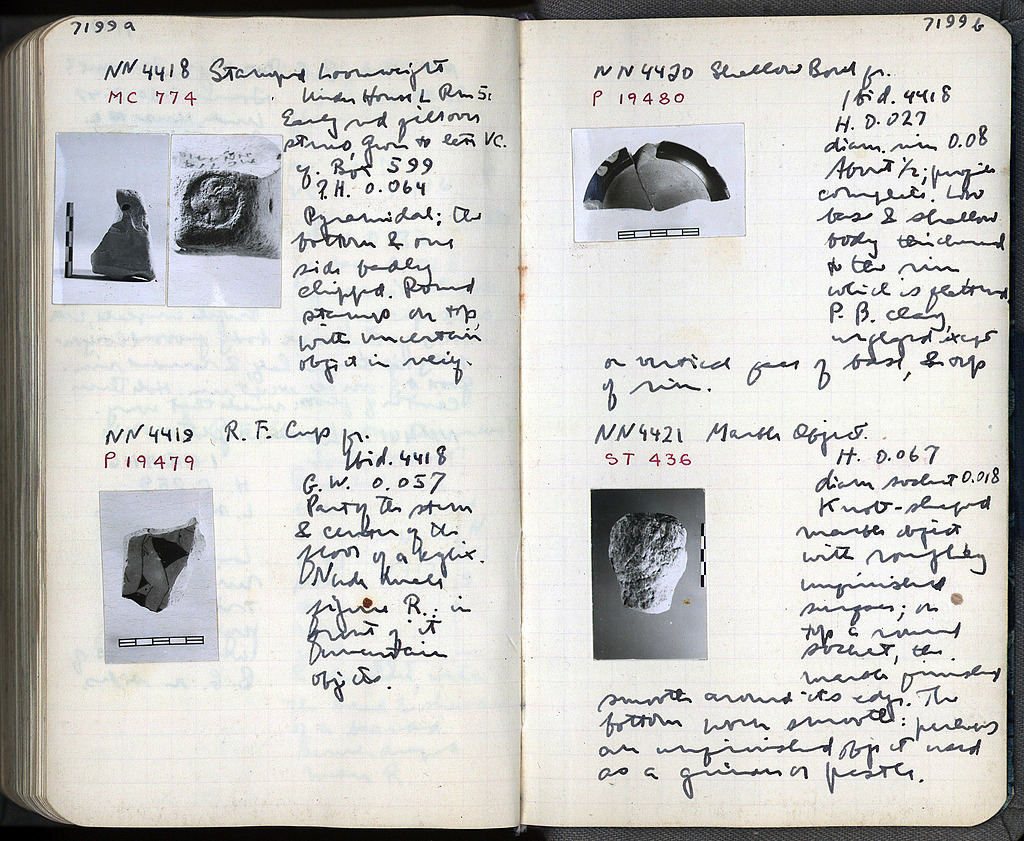 7199 a
NN 4418 Stamped Loomweight
MC 774
Under House L Rm 5:
Early red yellow
stereo, from to late VC.
cf. Box 599
P.H. 0.064
Pyramidal; the
bottom & one
side badly
chipped. Round
stamps on top,
with uncertain
object in relief.
NN 4419 R. F. Cup fr.
P 19479
Ibid. 4418
G. W. 0.057
Part of the stem
& center of the
floor of a kylix.
Nude kneels
figure R.; in
front of it
uncertain
objects.
7199 b
NN 4420 Shallow Bowl fr.
P 19480
Ibid. 4418
H. 0.027
diam. rim 0.08
About 1/2; profile
complete. Low
base & shallow
body thickened
to the rim
which is flattened
P. B. clay,
unglazed except
on vertical face of base, & top
of rim.
NN 4421 Marble Object.
ST 436
H. 0.067
diam socket 0.018
Knob-shaped
marble object
with roughly
unfinished
surfaces; on
top a round
socket, the
marble finished
smooth around its edge. The
bottom worn smooth: perhaps
an unfinished object used
as a grinder or pestle.